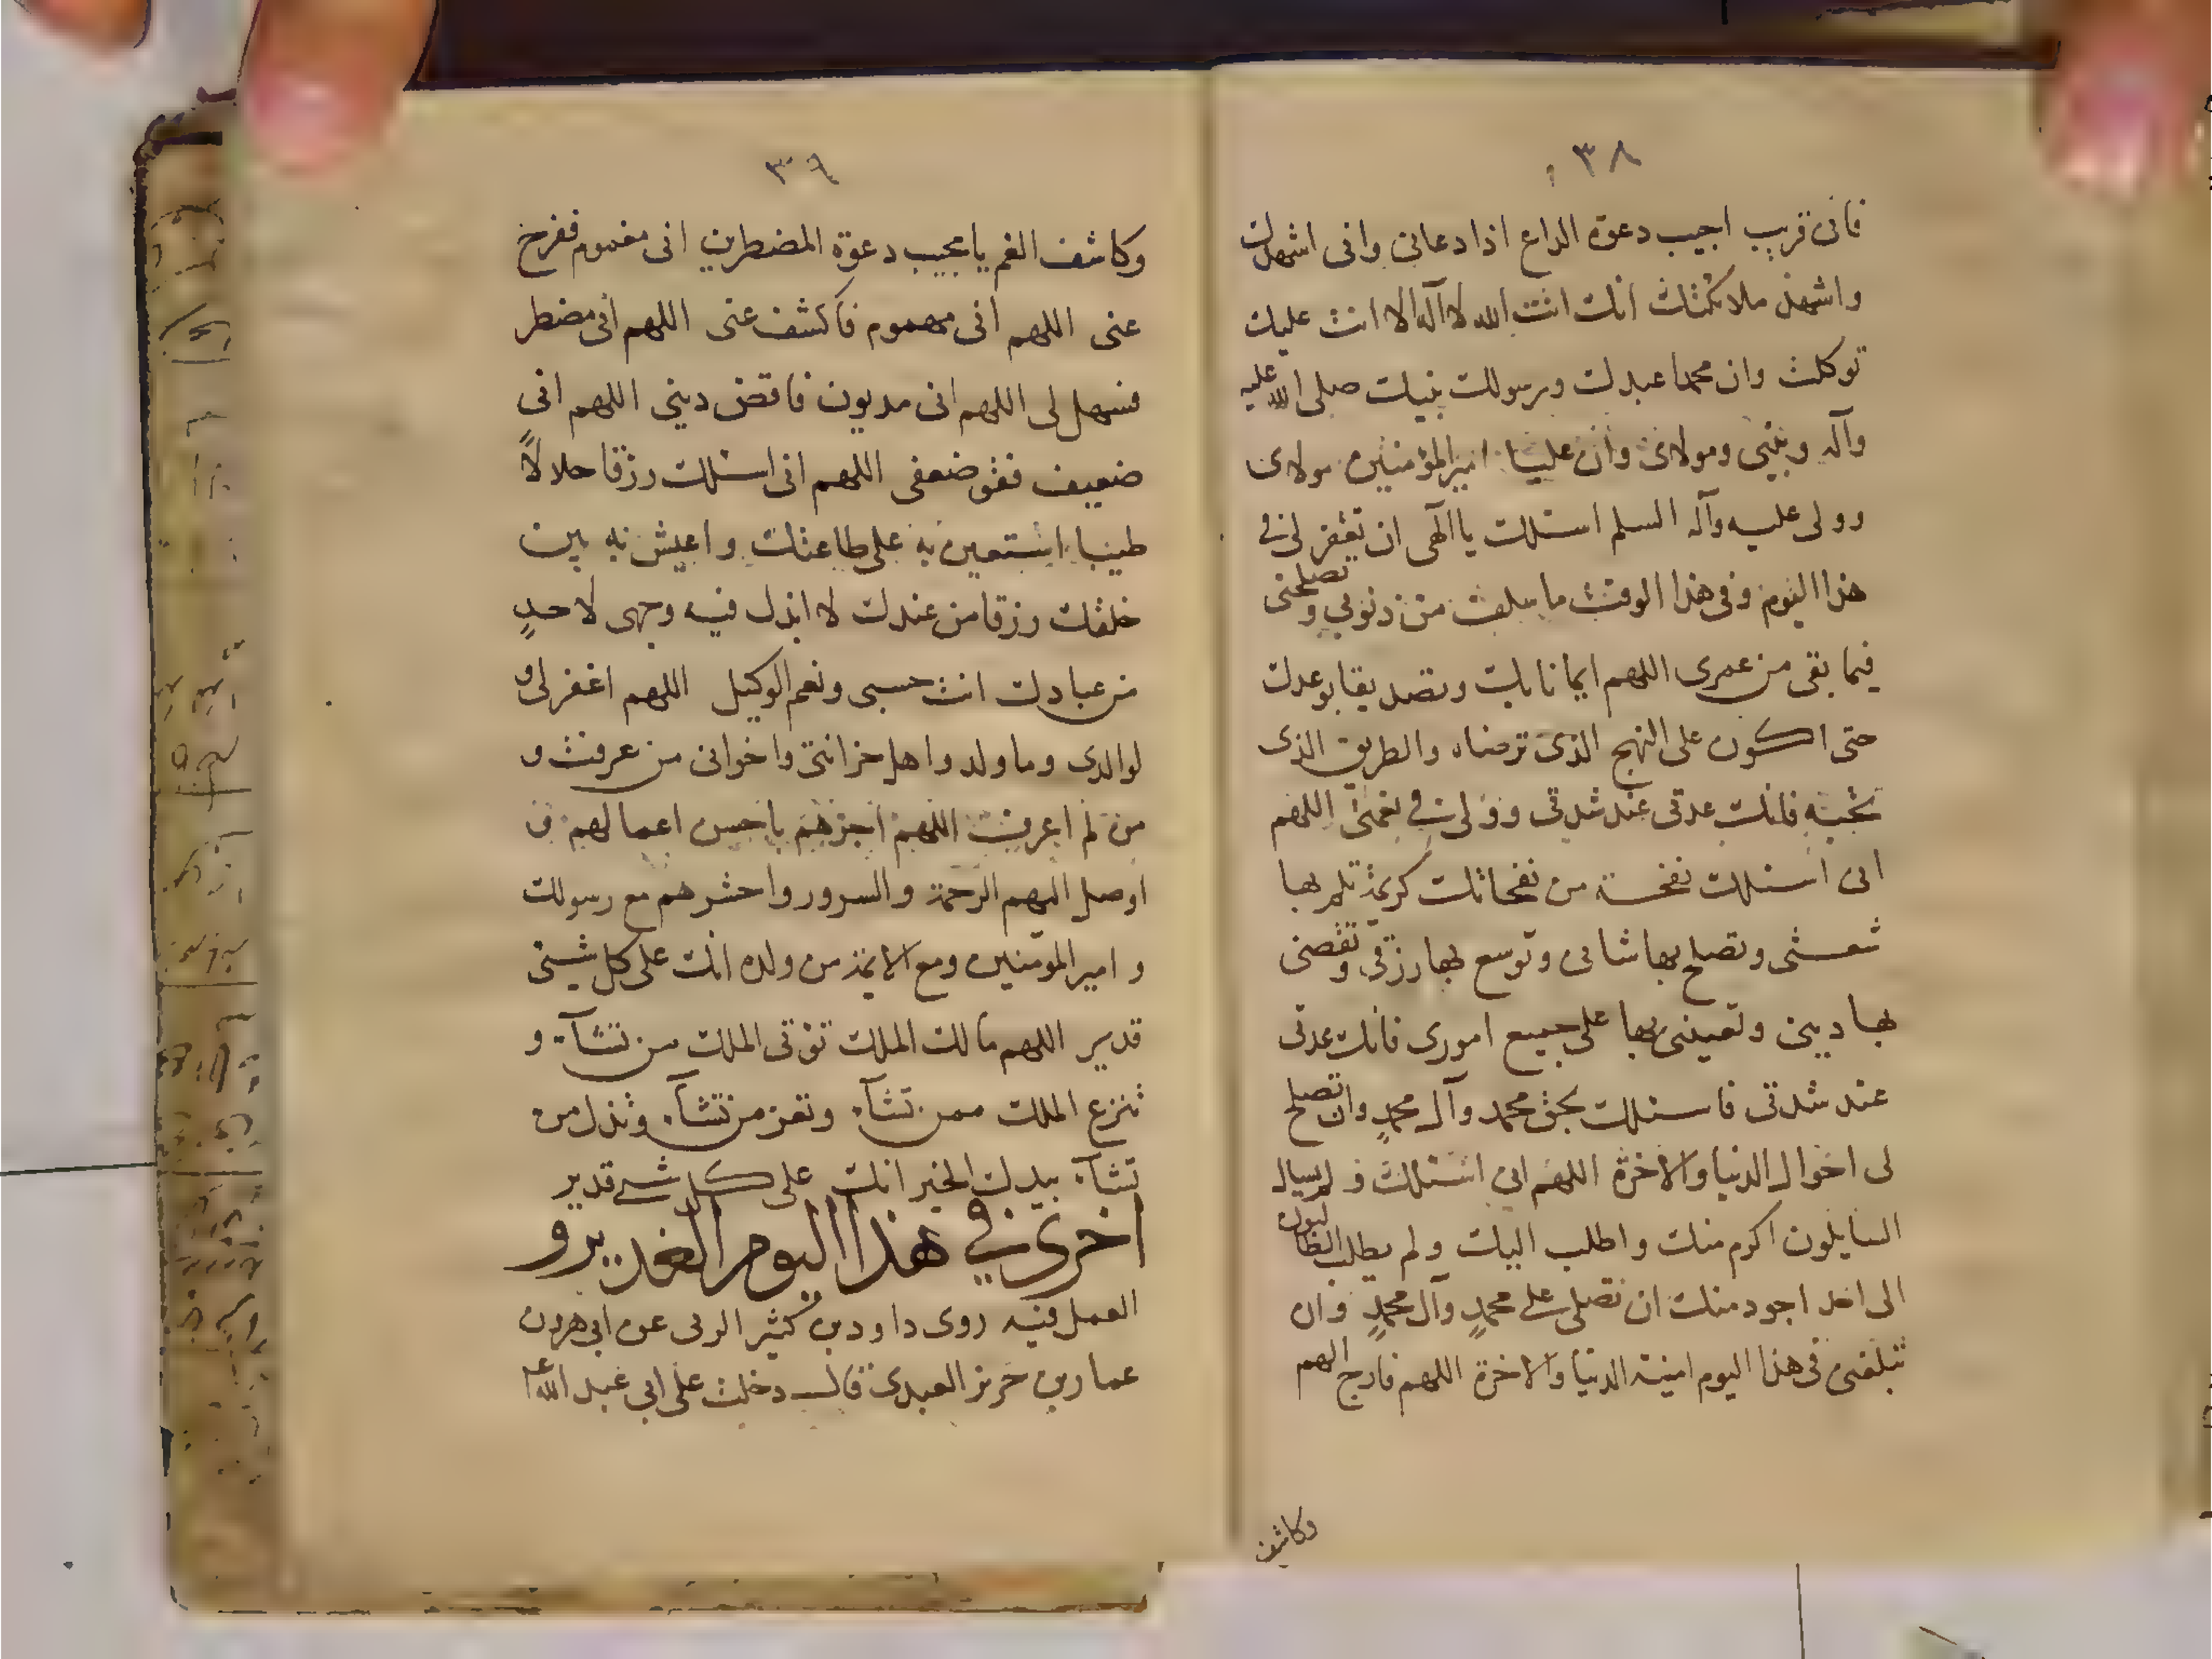 ٣٨
فانى قريب اجيب دعوة الداع اذا دعانى وانى اشهدك
واشهد ملائكتك انك انت الله لا آله الا انت عليك
توكلت وان محمدا عبدك ورسولك نبيك صلى الله عليه
وآله ونبيى ومولاى وان عليا امير المؤمنين مولاى
وولى عليه وآله السلم اسئلك يا آلهى ان تغفر لى فى
هذا اليوم وفى هذا الوقت ما سلف من ذنوبى وتصلحنى
فيما بقى من عمرى اللهم ايمانا بك وتصديقا بوعدك
حتى اكون على النهج الذى ترضاه والطريق الذى
تحبه فانك عدتى عند شدتى وولى فى نعمتى اللهم
انى اسئلك نفحة من نفحاتك كريمة تلم بها
شعثى وتصلح بها شانى وتوسع بها رزقى وتقضى
بها دينى وتعيننى بها على جميع امورى فانك عدتى
عند شدتى فاسئلك بحق محمد وآل محمدٍ وان تصلح
لى احوال الدنيا والاخرة اللهم انى اسئلك و لم يسال
السايلون اكرم منك واطلب اليك ولم يطلب الطالبون
الى احد اجود منك ان تصلى على محمدٍ وآل محمدٍ وان
تبلغنى فى هذا اليوم امنية الدنيا والاخرة اللهم فارج الهم
وكاشف
٣٩
وكاشف الغم يا مجيب دعوة المضطرين انى مغموم ففرج
عنى اللهم انى مهموم فاكشف عنى اللهم انى مضطر
فسهل لى اللهم انى مديون فاقض دينى اللهم انى
ضعيف فقو ضعفى اللهم انى اسئلك رزقا حلالاً
طيبا استعين به على طاعتك واعيش به بين
خلقك رزقا من عندك لا ابذل فيه وجهى لاحدٍ
من عبادك انت حسبى ونعم الوكيل اللهم اغفر لى و
لوالدى وما ولد واهل حزانتى واخوانى من عرفت و
من لم اعرف اللهم اجزهم باحسن اعمالهم و
اوصل اليهم الرحمة والسرور واحشرهم مع رسولك
و امير المؤمنين ومع الائمة من ولده انك على كل شيئى
قدير اللهم مالك الملك تؤتى الملك من تشآء و
تنزع الملك ممن تشآء وتعز من تشآء وتذل من
تشآء بيدك الخير انك على كل شىء قدير
اخرى فى هذا اليوم الغدير و
العمل فيه روى داود بن كثير الرقى عن ابى هرون
عمار بن حريز العبدى قال دخلت على ابى عبد الله ع